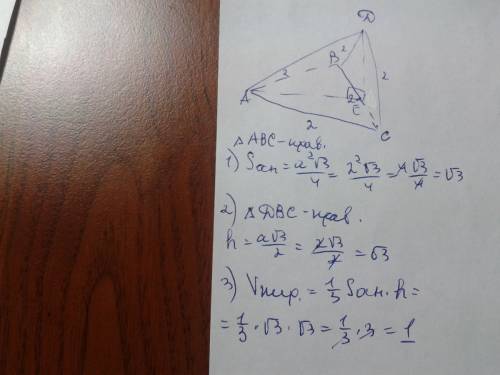 D
B 2
3 2
A
2 E
C
2
△ABC - прав.
1) Sосн = a²√3/4 = 2²√3/4 = 4√3/4 = √3
2) △DBC - прав.
h = a√3/2 = 2√3/2 = √3
3) Vпир. = 1/3 Sосн · h =
= 1/3 · √3 · √3 = 1/3 · 3 = 1